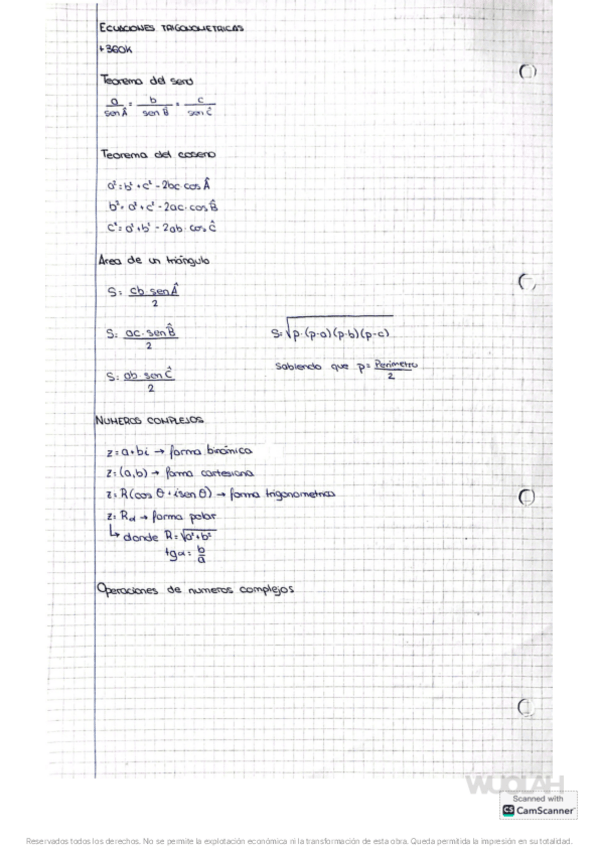 ECUACIONES TRIGONOMETRICAS
+360K
Teorema del seno
a/sen Â = b/sen B̂ = c/sen Ĉ
Teorema del coseno
a² = b² + c² - 2bc · cos Â
b² = a² + c² - 2ac · cos B̂
c² = a² + b² - 2ab · cos Ĉ
Area de un triángulo
S = cb · sen Â / 2
S = ac · sen B̂ / 2
S = √p · (p-a)(p-b)(p-c)
S = ab · sen Ĉ / 2
Sabiendo que p = Perimetro / 2
NUMEROS COMPLEJOS
z = a + bi → forma binómica
z = (a,b) → forma cartesiana
z = R(cos θ + isen θ) → forma trigonometrica
z = Rα → forma polar
↳ donde R = √a² + b²
tg α = b/a
Operaciones de numeros complejos
WUOLAH
Scanned with
CS CamScanner
Reservados todos los derechos. No se permite la explotación económica ni la transformación de esta obra. Queda permitida la impresión en su totalidad.